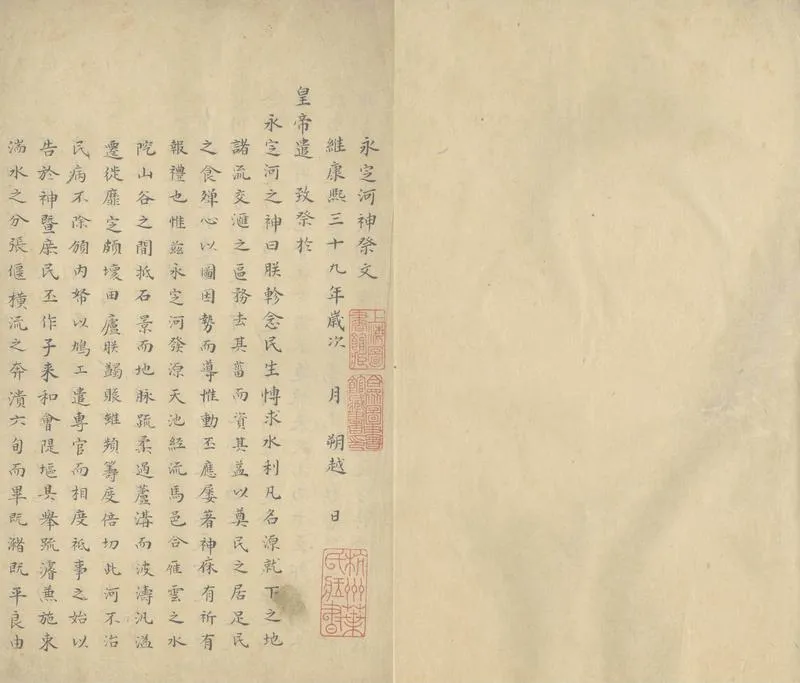 永定河神祭文
維康熙三十九年歲次　月　朔越　日
皇帝遣　致祭於
永定河之神曰朕軫念民生慱求水利凡名源就下之地
諸流交滙之區務去其菑而資其益以奠民之居足民
之食殫心以圖因勢而導惟動丕應屢著神庥有祈有
報禮也惟茲永定河發源天池經流馬邑合雁雲之水
陀山谷之間抵石景而地脉疏柔過蘆溝而波濤汎溢
遷徙靡定頗壞田廬朕蠲賑雖頻籌度倍切此河不治
民病不除頒內帑以鳩工遣專官而相度祗事之始以
告於神暨庶民丕作子來和會隄堰具舉疏濬兼施束
湍水之分張偃橫流之奔潰六旬而畢既瀦既平良由
上海圖書館藏
杭州葉氏藏書